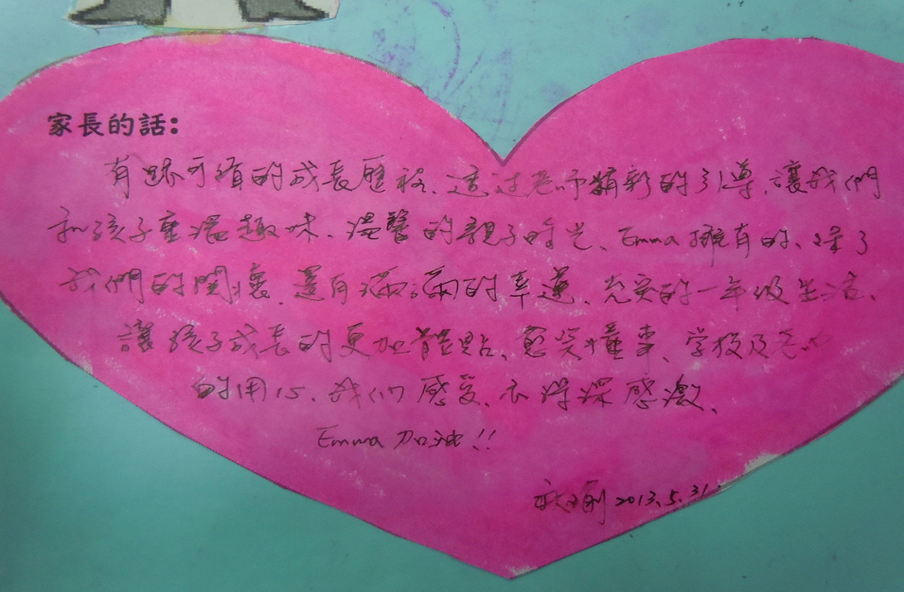 家長的話:
有跡可循的成長歷程、透過老師精彩的引導、讓我們
和孩子重溫趣味、溫馨的親子時光、Emma擁有的、除了
我們的關懷、還有滿滿的幸運、充實的一年級生活、
讓孩子成長的更加體貼、愈發懂事、学校及老师
的用心、我们感受、亦深深感激、
Emma 加油!!
2013.5.31